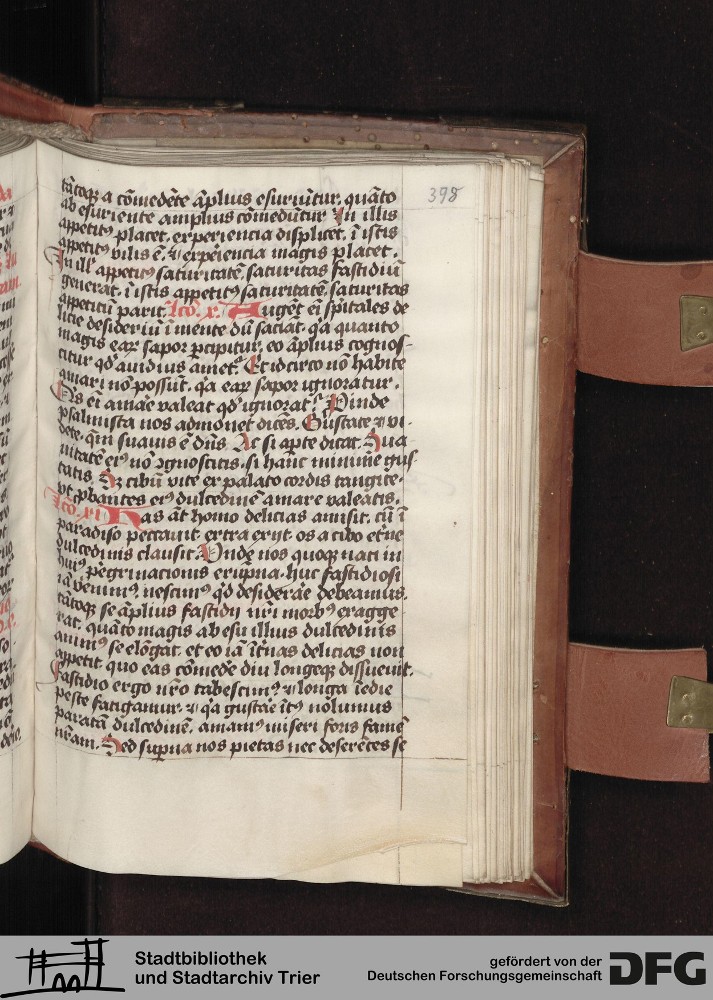 398
tātoqȝ a cōmedēte āplius esuriūtur. quāto
ab esuriente amplius cōmedūtur In illis
appetitꝰ placet. experiencia displicet. ī istis
appetitꝰ vilis ē. ⁊ experiencia magis placet.
In illꝭ appetitꝰ saturitatē. saturitas fastidiū
generat. ī istis appetitꝰ saturitatē. saturitas
appetitū parit. lco. x. Augēt eī spūales de
licie desideriū ī mente dū saciāt. qꝛ quanto
magis eaꝝ sapor ꝑcipitur. eo āplius cognos-
citur qd' auidius ametꝰ. Et idcirco nō habite
amari nō possūt. qꝛ eaꝝ sapor ignoratur.
Qꝭs eī amāe valeat qd' ignorat? Vinde
psalmista nos admonet dicēs. Gustate ⁊ vi-
dete. qm̄ suauis ē dn̄s Ac si apte dicat. Sua
uitatē eiꝰ nō ꝯgnoscitis. si hanc minime gus
tatis Sȝ cibū vite ex palato cordis tangite.
vt ꝓbantes eiꝰ dulcedinē amare valeatis.
lco. xi Has āt homo delicias amisit. cū ī
paradiso peccauit. extra exijt. os a cibo etn̄e
dulcedinis clausit. Vnde nos quoqȝ nati in
huiꝰ pēgrinacionis erūpna. huc fastidiosi
iā venimꝰ. nescimꝰ qd desiderāe debeamus.
tātoqȝ se āplius fastidij nr̄i morbꝰ exagge-
rat. quāto magis ab esu illius dulcedinis
animꝰ se elōgat. et eo iā īt'nas delicias non
appetit. quo eas cōmedē diu longeqȝ dissueuit.
Fastidio ergo nr̄o tabescimꝰ ⁊ longa īedie
peste fatigamur. ⁊ qꝛ gustāe ītꝰ nolumus
paratā dulcedinē. amamꝰ miseri foris famē
nr̄am. Sed suꝑna nos pietas nec deserētes se
Stadtbibliothek
und Stadtarchiv Trier
gefördert von der
Deutschen Forschungsgemeinschaft
DFG